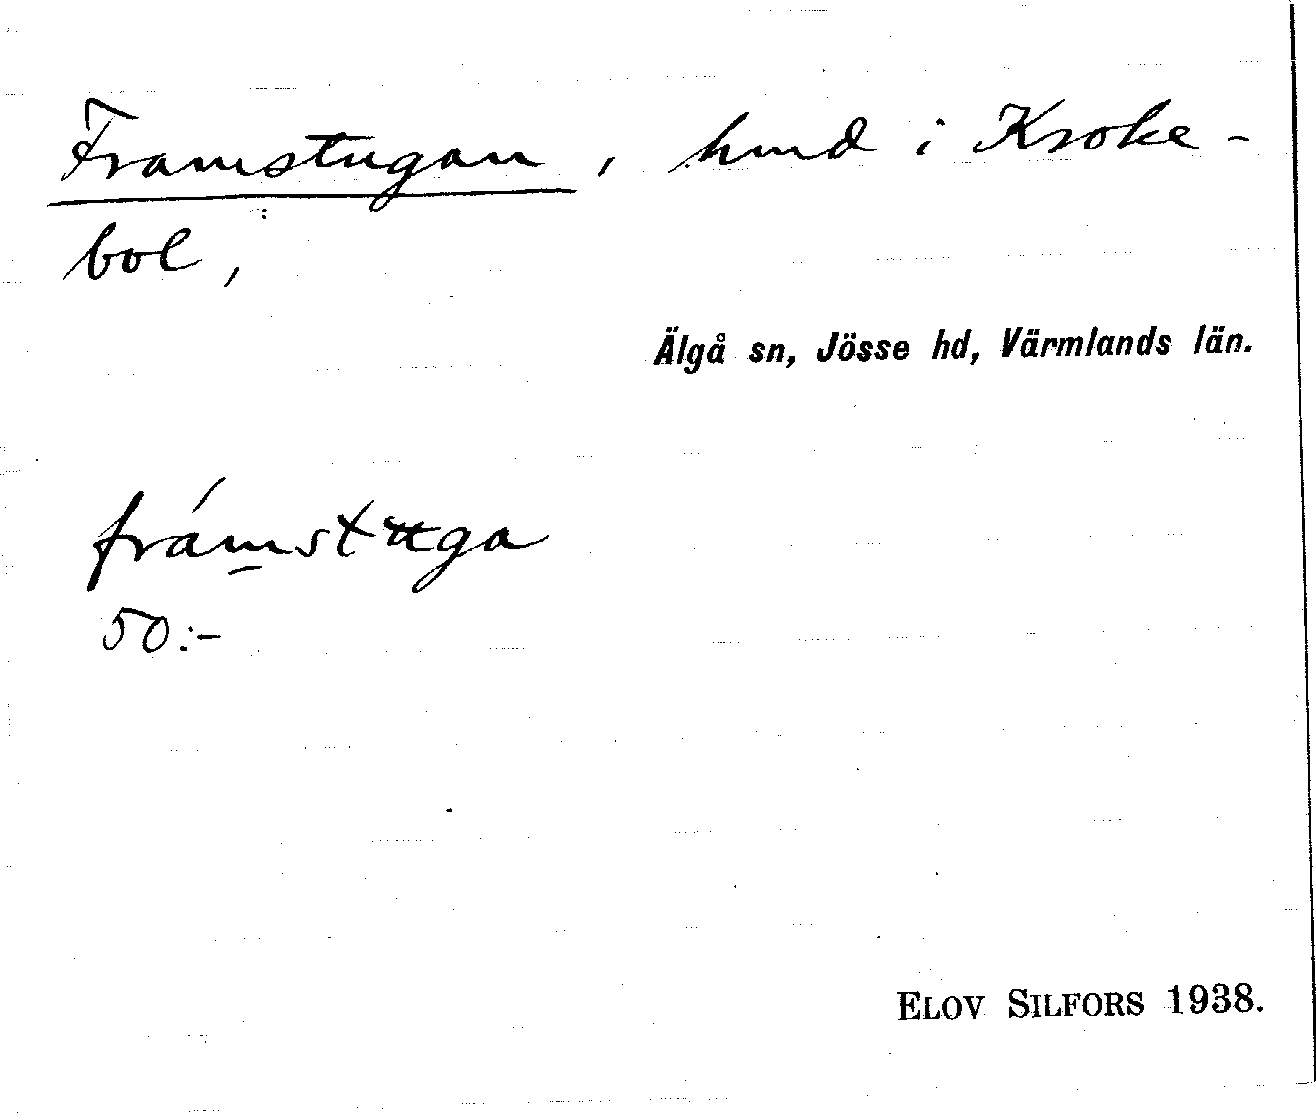 Framstugan, hmd i Kroke-
bol,
Älgå sn, Jösse hd, Värmlands län.
frám̲stuga
50:-
ELOV SILFORS 1938.